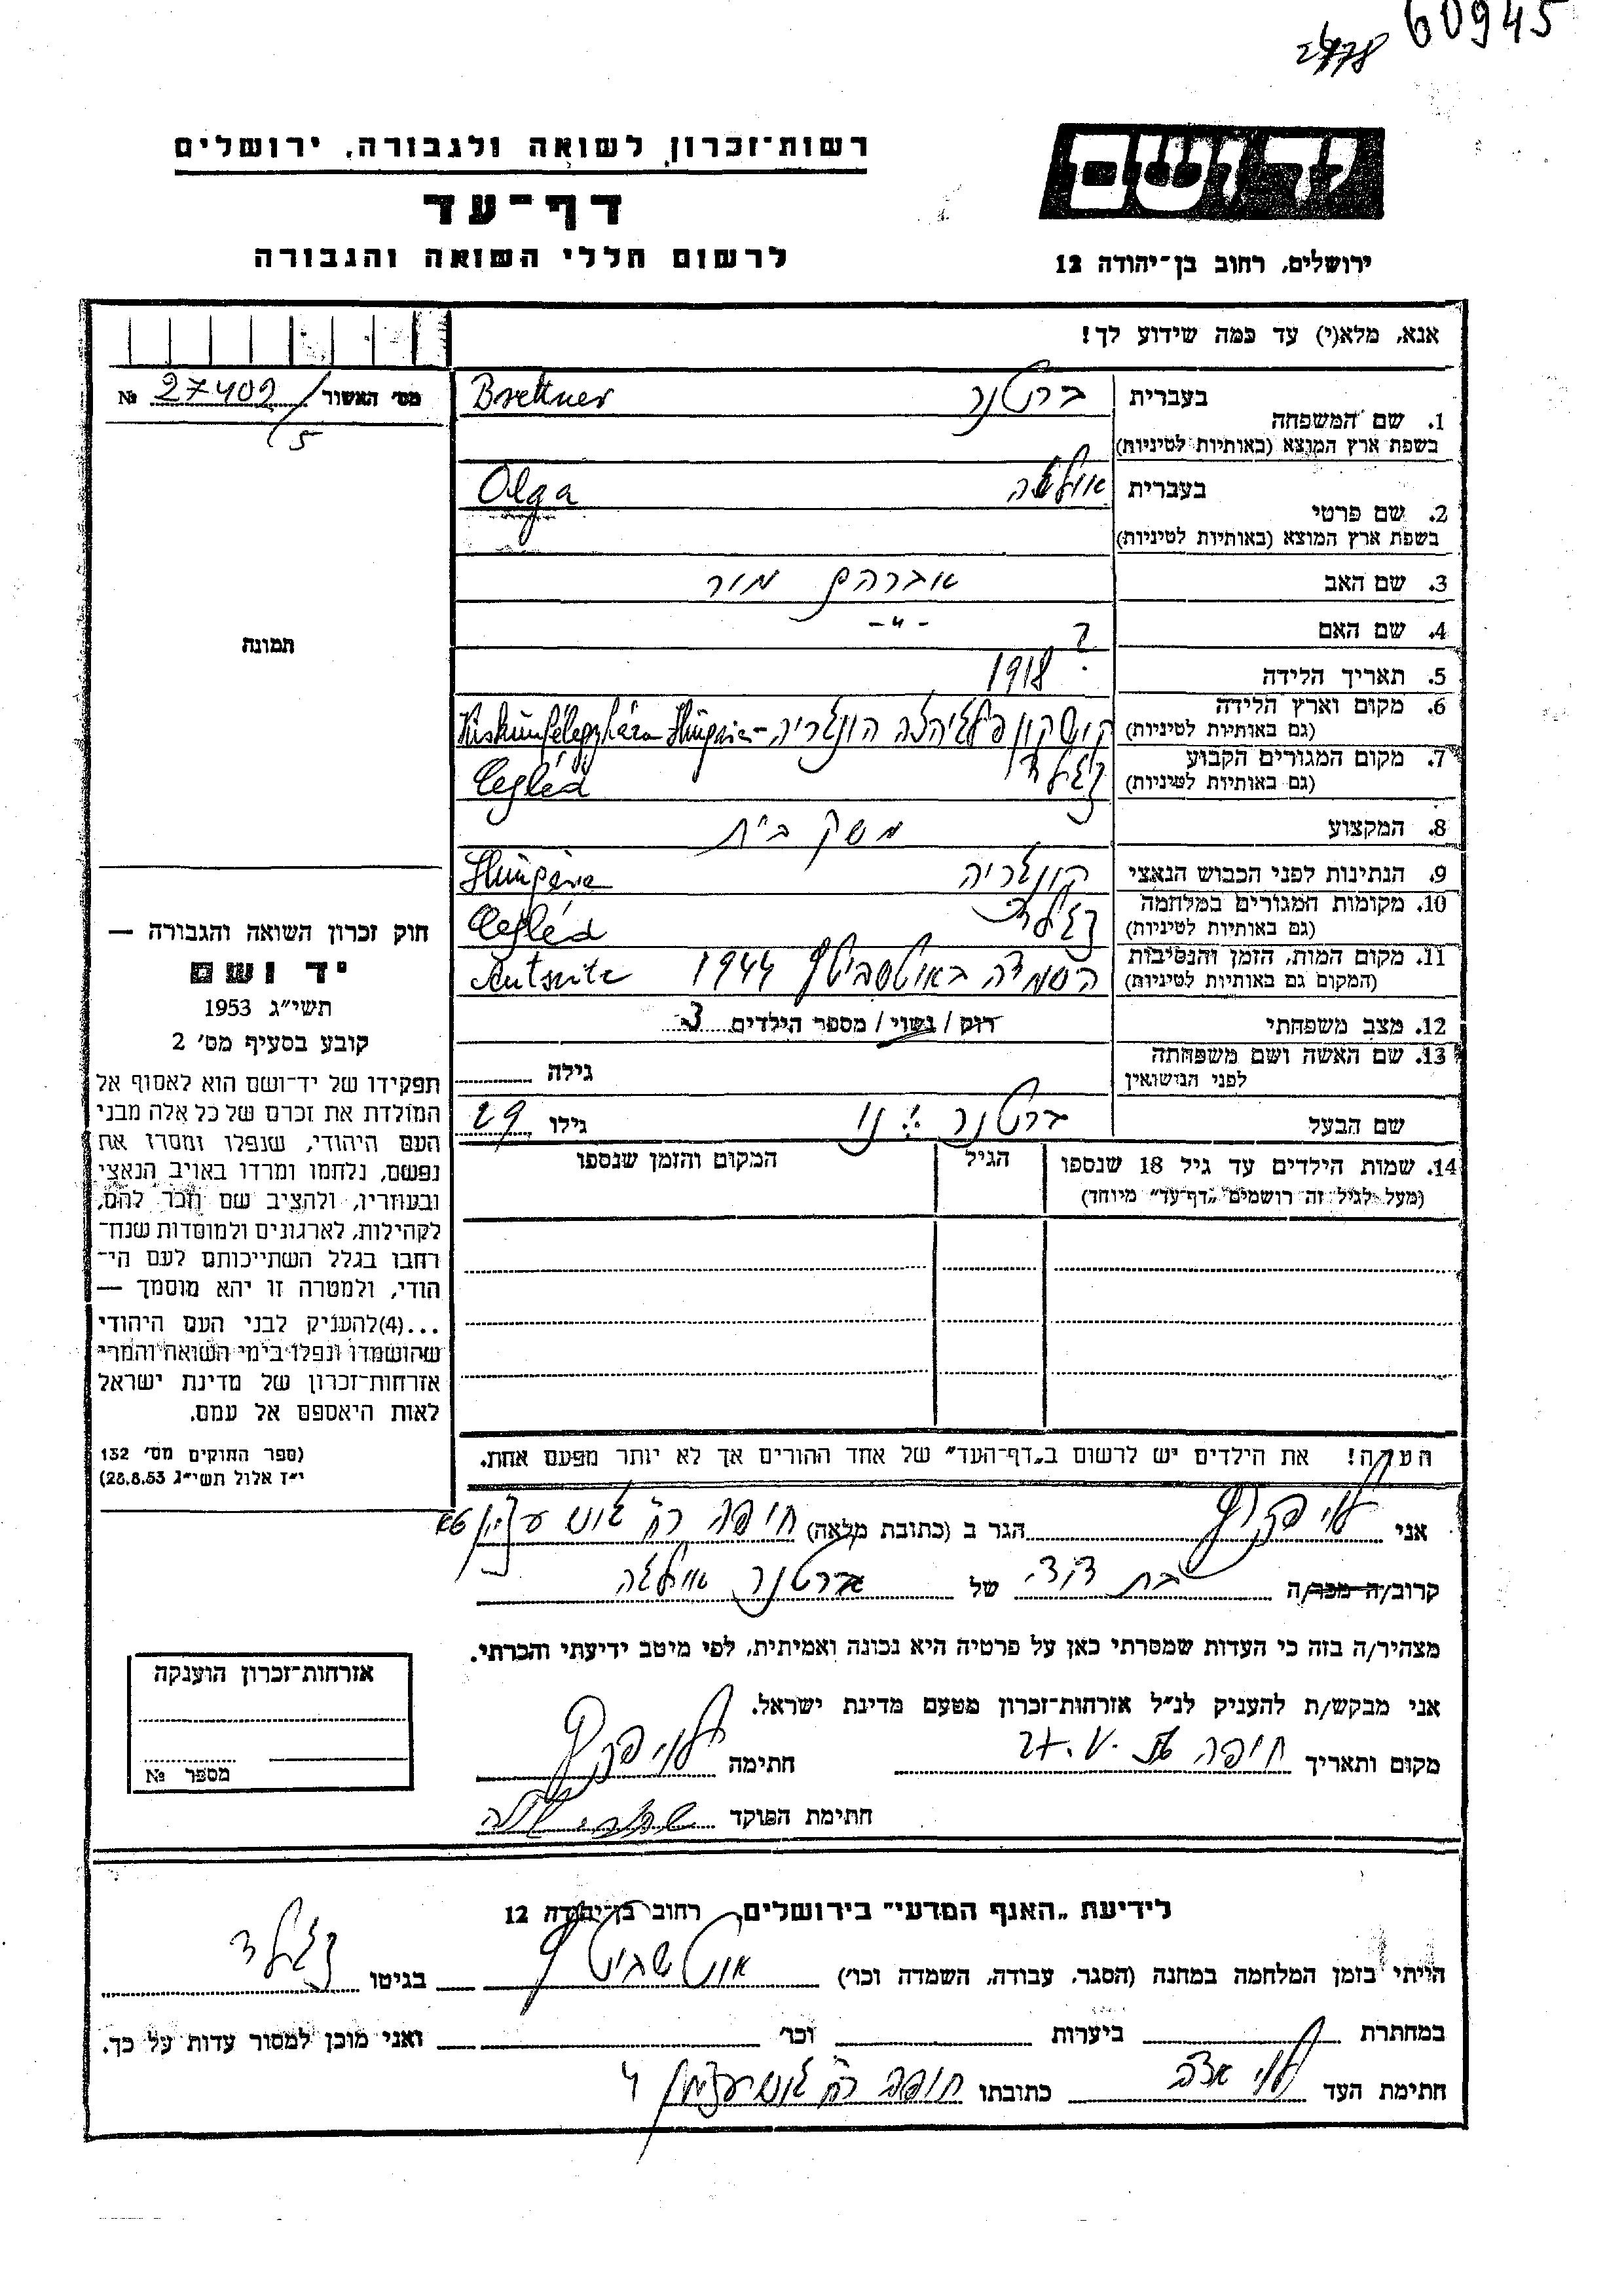 60945
רשות־זכרון לשואה ולגבורה, ירושלים
דף־עד
לרשום חללי השואה והגבורה
יד ושם
ירושלים, רחוב בן־יהודה 12
אנא, מלא(י) עד כמה שידוע לך!
מס׳ האשור 27402/5 №
1. שם המשפחה
בעברית ברטנר Brettner
בשפת ארץ המוצא (באותיות לטיניות)
בעברית אולגה Olga
2. שם פרטי
בשפת ארץ המוצא (באותיות לטיניות)
3. שם האב אברהם מור
4. שם האם ? -"-
5. תאריך הלידה 1918
6. מקום וארץ הלידה
(גם באותיות לטיניות) הונגריה
7. מקום המגורים הקבוע
(גם באותיות לטיניות) צגלד Cegléd
8. המקצוע משק בית
9. הנתינות לפני הכבוש הנאצי הונגריה
10. מקומות המגורים במלחמה
(גם באותיות לטיניות) צגלד Cegléd
11. מקום המות, הזמן והנסיבות
(המקום גם באותיות לטיניות) 1944
12. מצב משפחתי רוק / נשוי / מספר הילדים 3
13. שם האשה ושם משפחתה
לפני הנישואין גילה
שם הבעל ברטנר גילו 29
14. שמות הילדים עד גיל 18 שנספו הגיל המקום והזמן שנספו
(מעל לגיל זה רושמים „דף־עד״ מיוחד)
הערה! את הילדים יש לרשום ב„דף־העד״ של אחד ההורים אך לא יותר מפעם אחת.
תמונה
חוק זכרון השואה והגבורה —
יד ושם
תשי״ג 1953
קובע בסעיף מס׳ 2
תפקידו של יד־ושם הוא לאסוף אל
המולדת את זכרם של כל אלה מבני
העם היהודי, שנפלו ומסרו את
נפשם, נלחמו ומרדו באויב הנאצי
ובעוזריו, ולהציב שם וזכר להם,
לקהילות, לארגונים ולמוסדות שנח־
רבו בגלל השתייכותם לעם הי־
הודי, ולמטרה זו יהא מוסמך —
...(4)להעניק לבני העם היהודי
שהושמדו ונפלו בימי השואה והמרי
אזרחות־זכרון של מדינת ישראל
לאות היאספם אל עמם.
(ספר החוקים מס׳ 132
י״ז אלול תשי״ג 28.8.53)
אני לוי הגר ב (כתובת מלאה) חיפה רח׳ גוש עציון
קרוב/ה מכר/ה בת דודה של ברטנר אולגה
מצהיר/ה בזה כי העדות שמסרתי כאן על פרטיה היא נכונה ואמיתית, לפי מיטב ידיעתי והכרתי.
אני מבקש/ת להעניק לנ״ל אזרחות־זכרון מטעם מדינת ישראל.
מקום ותאריך חיפה חתימה
חתימת הפוקד
אזרחות־זכרון הוענקה
מספר №
לידיעת „האגף המדעי״ בירושלים, רחוב בן־יהודה 12
הייתי בזמן המלחמה במחנה (הסגר, עבודה, השמדה וכו׳) אוטשביץ בגיטו צגלד
במחתרת ביערות וכו׳ ואני מוכן למסור עדות על כך.
חתימת העד לוי כתובתו חיפה רח׳ גוש עציון 4